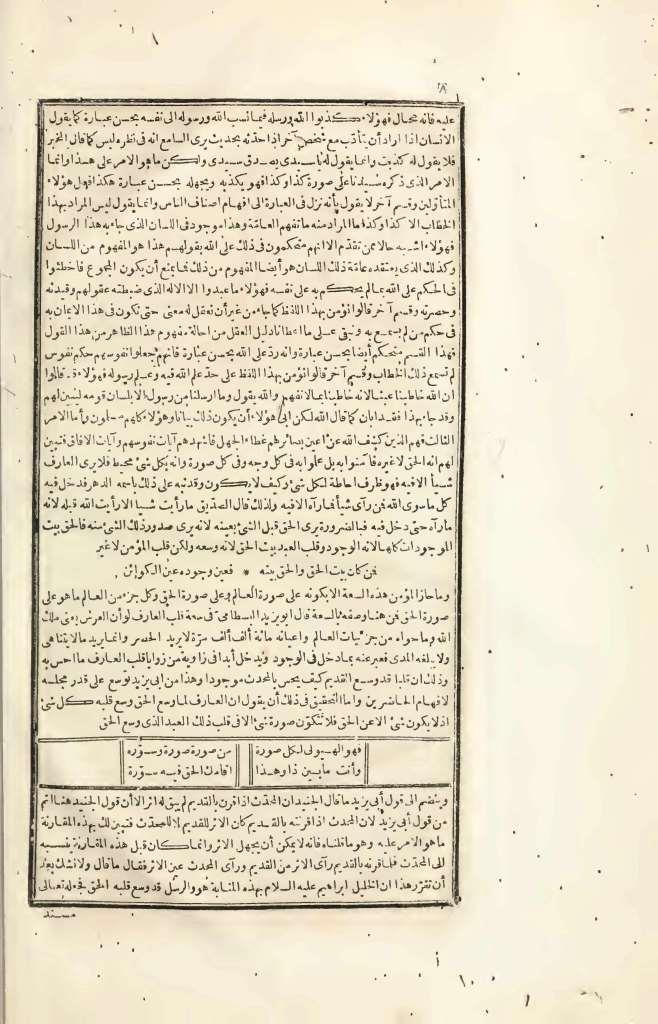 ٨
عليه فانه محال فهؤلاء كذبوا الله ورسله فيما نسب الله ورسوله الى نفسه بحسن عبارة كما يقول
الانسان اذا اراد أن يتأدب مع شخص آخر اذا حدثه بحديث يرى السامع انه فى نظره ليس كما قال المخبر
فلا يقول له كذبت وانما يقول له يا سيدى يصدق سيدى ولكن ما هو الامر على هذا وانما
الامر الذى ذكره سيدنا على صورة كذا وكذا فهو يكذبه ويجهله بحسن عبارة هكذا فعل هؤلاء
المتأولين وقسم آخر لا يقول بأنه نزل فى العبارة الى افهام اصناف الناس وانما يقول ليس المراد بهذا
الخطاب الا كذا وكذا ما المراد منه ما تفهمه العامة وهذا موجود فى اللسان الذى جاء به هذا الرسول
فهؤلاء اشبه حالا ممن تقدم الا انهم متحكمون فى ذلك على الله بقولهم هذا هو المفهوم من اللسان
وكذلك الذى يعتقده عامة ذلك اللسان هو أيضا المفهوم من ذلك فما يمنع أن يكون المجموع فاخطئوا
فى الحكم على الله بما لم يحكم به على نفسه فهؤلاء ما عبدوا الا الاله الذى ضبطته عقولهم وقيدته
وحصرته وقسم آخر قالوا نؤمن بهذا اللفظ كما جاء من غير أن نعقل له معنى حتى نكون فى هذا الايمان به
فى حكم من لم يسمع به ونبقى على ما اعطانا دليل العقل من احالة مفهوم هذا الظاهر من هذا القول
فهذا القسم متحكم أيضا بحسن عبارة وانه رد على الله بحسن عبارة فانهم جعلوا نفوسهم حكم نفوس
لم تسمع ذلك الخطاب وقسم آخر قالوا نؤمن بهذا اللفظ على حد علم الله فيه وعلم رسوله فهؤلاء قد قالوا
ان الله خاطبنا عبثا لانه خاطبنا بما لا نفهم والله يقول وما ارسلنا من رسول الا بلسان قومه ليبين لهم
وقد جاء بهذا فقد ابان كما قال الله لكن ابى هؤلاء أن يكون ذلك بيانا وهؤلاء كلهم مسلمون وأما الامر
الثالث فهم الذين كشف الله عن اعين بصائرهم غطاء الجهل فاشهدهم آيات نفوسهم وآيات الافاق فتبين
لهم انه الحق لا غيره فآمنوا به بل علموا به فى كل وجه وفى كل صورة وانه بكل شئ محيط فلا يرى العارف
شيئا الا فيه فهو ظرف احاطة لكل شئ وكيف لا يكون وقد نبه على ذلك باسمه الدهر فدخل فيه
كل ما سوى الله فمن رأى شيئا فما رآه الا فيه ولذلك قال الصديق ما رأيت شيئا الا رأيت الله قبله لانه
ما رآه حتى دخل فيه فبالضرورة يرى الحق قبل الشئ بعينه لانه يرى صدور ذلك الشئ منه فالحق بيت
الموجودات كلها لانه الوجود وقلب العبد بيت الحق لانه وسعه ولكن قلب المؤمن لا غير
فمن كان بيت الحق والحق بيته * فعين وجود عين الكوائن
وما حاز المؤمن هذه السعة الا بكونه على صورة العالم وعلى صورة الحق وكل جزء من العالم ما هو على
صورة الحق فمن هنا وصفه بالسعة قال ابو يزيد البسطامى فى سعة قلب العارف لو أن العرش يعنى ملك
الله وما حواه من جزئيات العالم واعيانه مائة ألف ألف مرة لا يريد الحصر وانما يريد ما لا يتناهى
ولا يبلغه المدى فعبر عنه بما دخل فى الوجود ويدخل أبدا فى زاوية من زوايا قلب العارف ما احس به
وذلك ان قلبا قد وسع القديم كيف يحس بالمحدث موجودا وهذا من ابى يزيد توسع على قدر مجلسه
لافهام الحاضرين واما التحقيق فى ذلك أن يقول ان العارف لما وسع الحق وسع قلبه كل شئ
اذ لا يكون شئ الا عن الحق فلا تتكون صورة شئ الا فى قلب ذلك العبد الذى وسع الحق
فهو الهيولى لكل صورة من صورة صورة وسوره
وأنت ما بين ذا وهذا اقامك الحق فيه سورة
وينضم الى قول أبى يزيد ما قال الجنيد ان المحدث اذا قرن بالقديم لم يبق له اثر الا أن قول الجنيد هنا اتم
من قول أبى يزيد لان المحدث اذا قرنته بالقديم كان الاثر للقديم لا للمحدث فتبين لك بهذه المقارنة
ما هو الامر عليه وهو ما قلناه فانه لا يمكن أن يجهل الاثر وانما كان قبل هذه المقارنة ينسبه
الى المحدث فلما قرنه بالقديم رأى الاثر من القديم ورأى المحدث عين الاثر فقال ما قال ولا نشك بعد
أن تقرر هذا ان الخليل ابراهيم عليه السلام بهذه المثابة هو والرسل قد وسع قلبه الحق فجعله تعالى
مسند